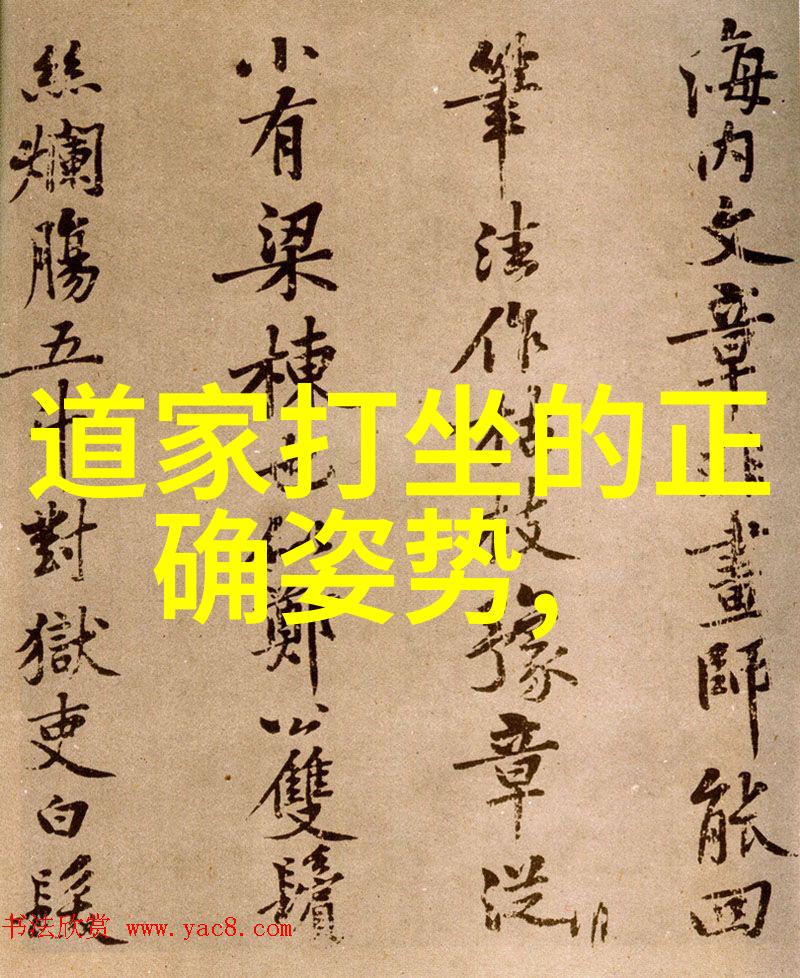 海内文章非畫師能回
筆法作枯枝豫章從
小有梁棟也似鄭公雙鬢
絲爛腸五斗對獄吏白髮
道家打坐的正
确姿势,
书法欣赏 www.yac8.com